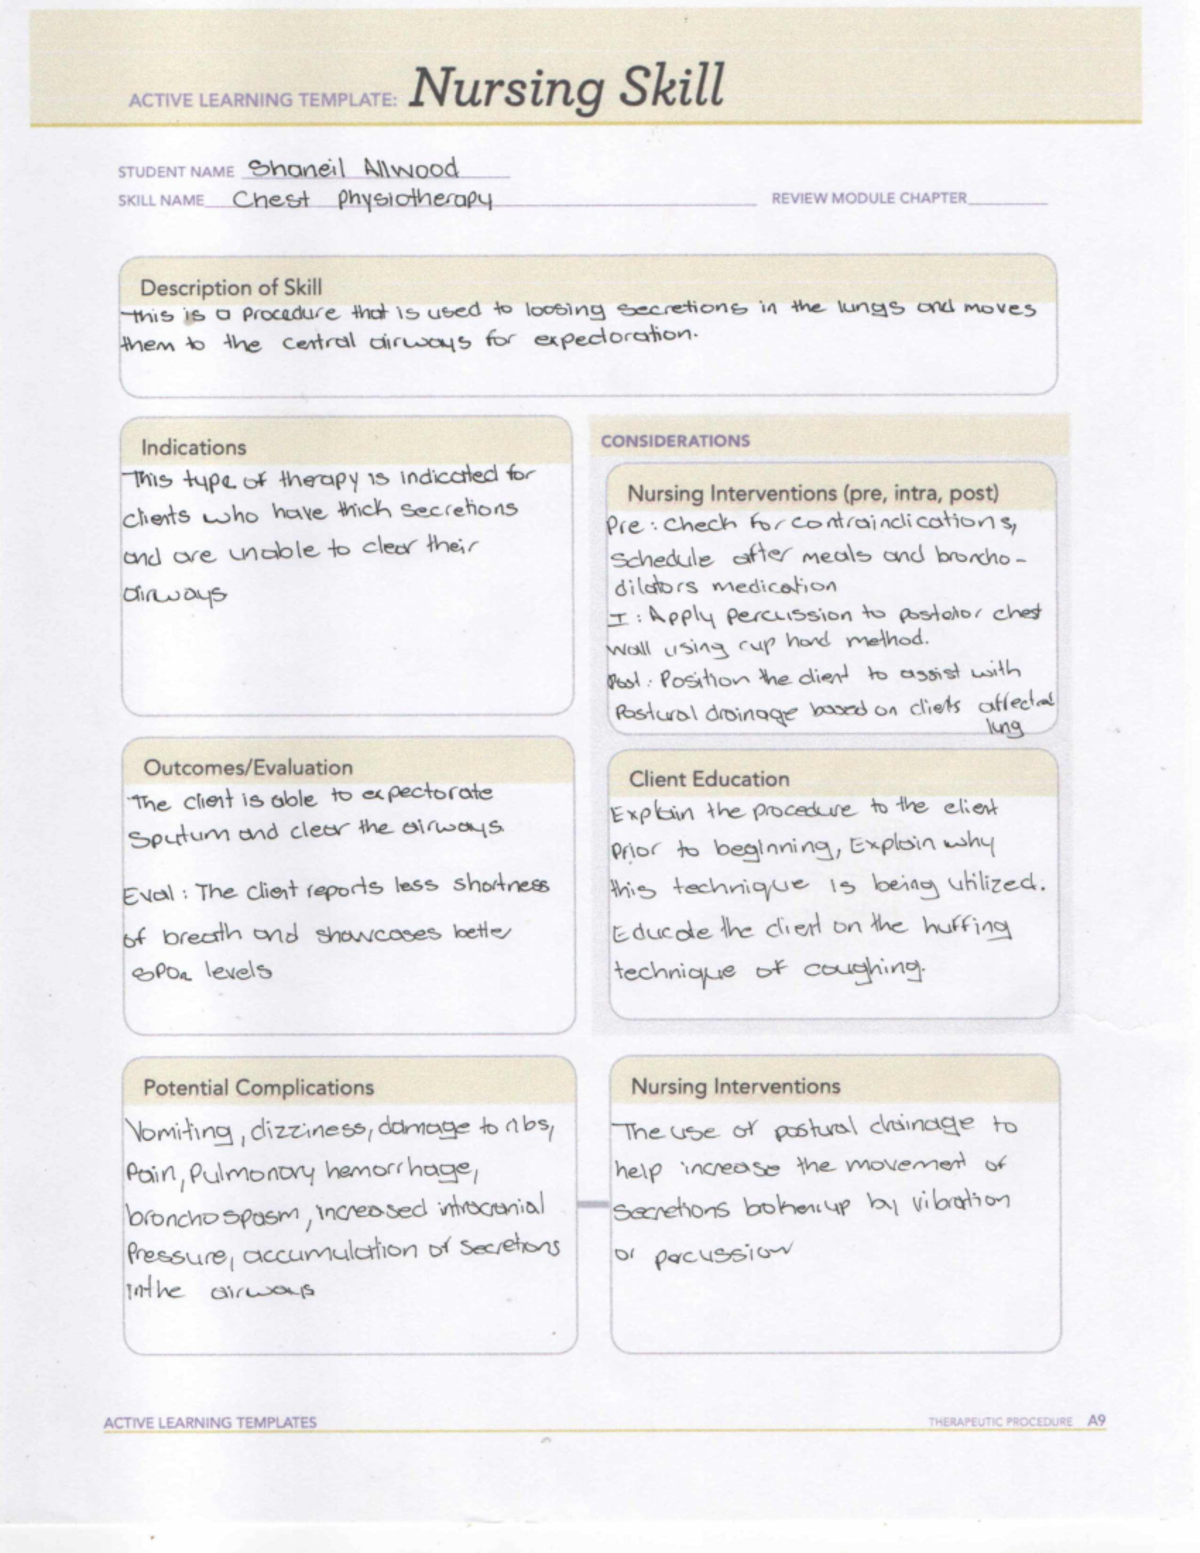 ACTIVE LEARNING TEMPLATE: Nursing Skill
STUDENT NAME Shaneil Allwood
SKILL NAME Chest physiotherapy REVIEW MODULE CHAPTER
Description of Skill
This is a procedure that is used to loosing secretions in the lungs and moves
them to the central airways for expectoration.
Indications
This type of therapy is indicated for
clients who have thick secretions
and are unable to clear their
airways
CONSIDERATIONS
Nursing Interventions (pre, intra, post)
Pre : Check for contraindications,
Schedule after meals and broncho-
dilators medication
I : Apply percussion to posterior chest
wall using cup hand method.
Post : Position the client to assist with
Postural drainage based on clients affected
lung
Outcomes/Evaluation
The client is able to expectorate
Sputum and clear the airways.
Eval : The client reports less shortness
of breath and showcases better
SPO2 levels
Client Education
Explain the procedure to the client
Prior to beginning, Explain why
this technique is being utilized.
Educate the client on the huffing
technique of coughing.
Potential Complications
Vomiting, dizziness, damage to ribs,
Pain, Pulmonary hemorrhage,
bronchospasm, increased intracranial
Pressure, accumulation of secretions
in the airways
Nursing Interventions
The use of postural drainage to
help increase the movement of
secretions broken up by vibration
or percussion
ACTIVE LEARNING TEMPLATES
THERAPEUTIC PROCEDURE A9